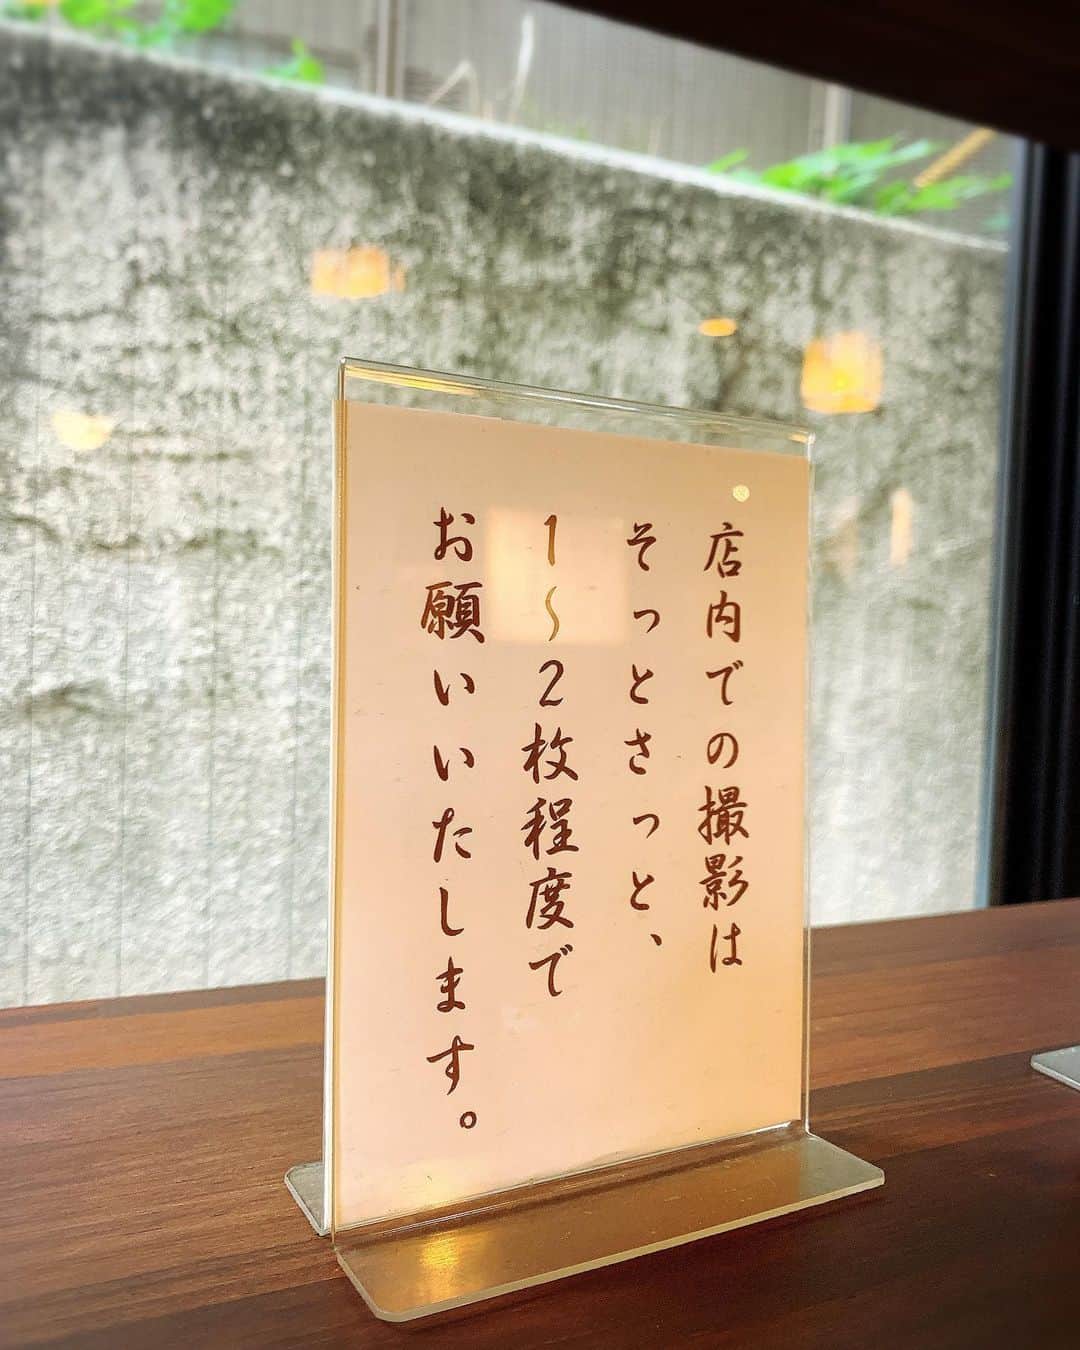 店内での撮影は
そっとさっと、
1〜2枚程度で
お願いいたします。